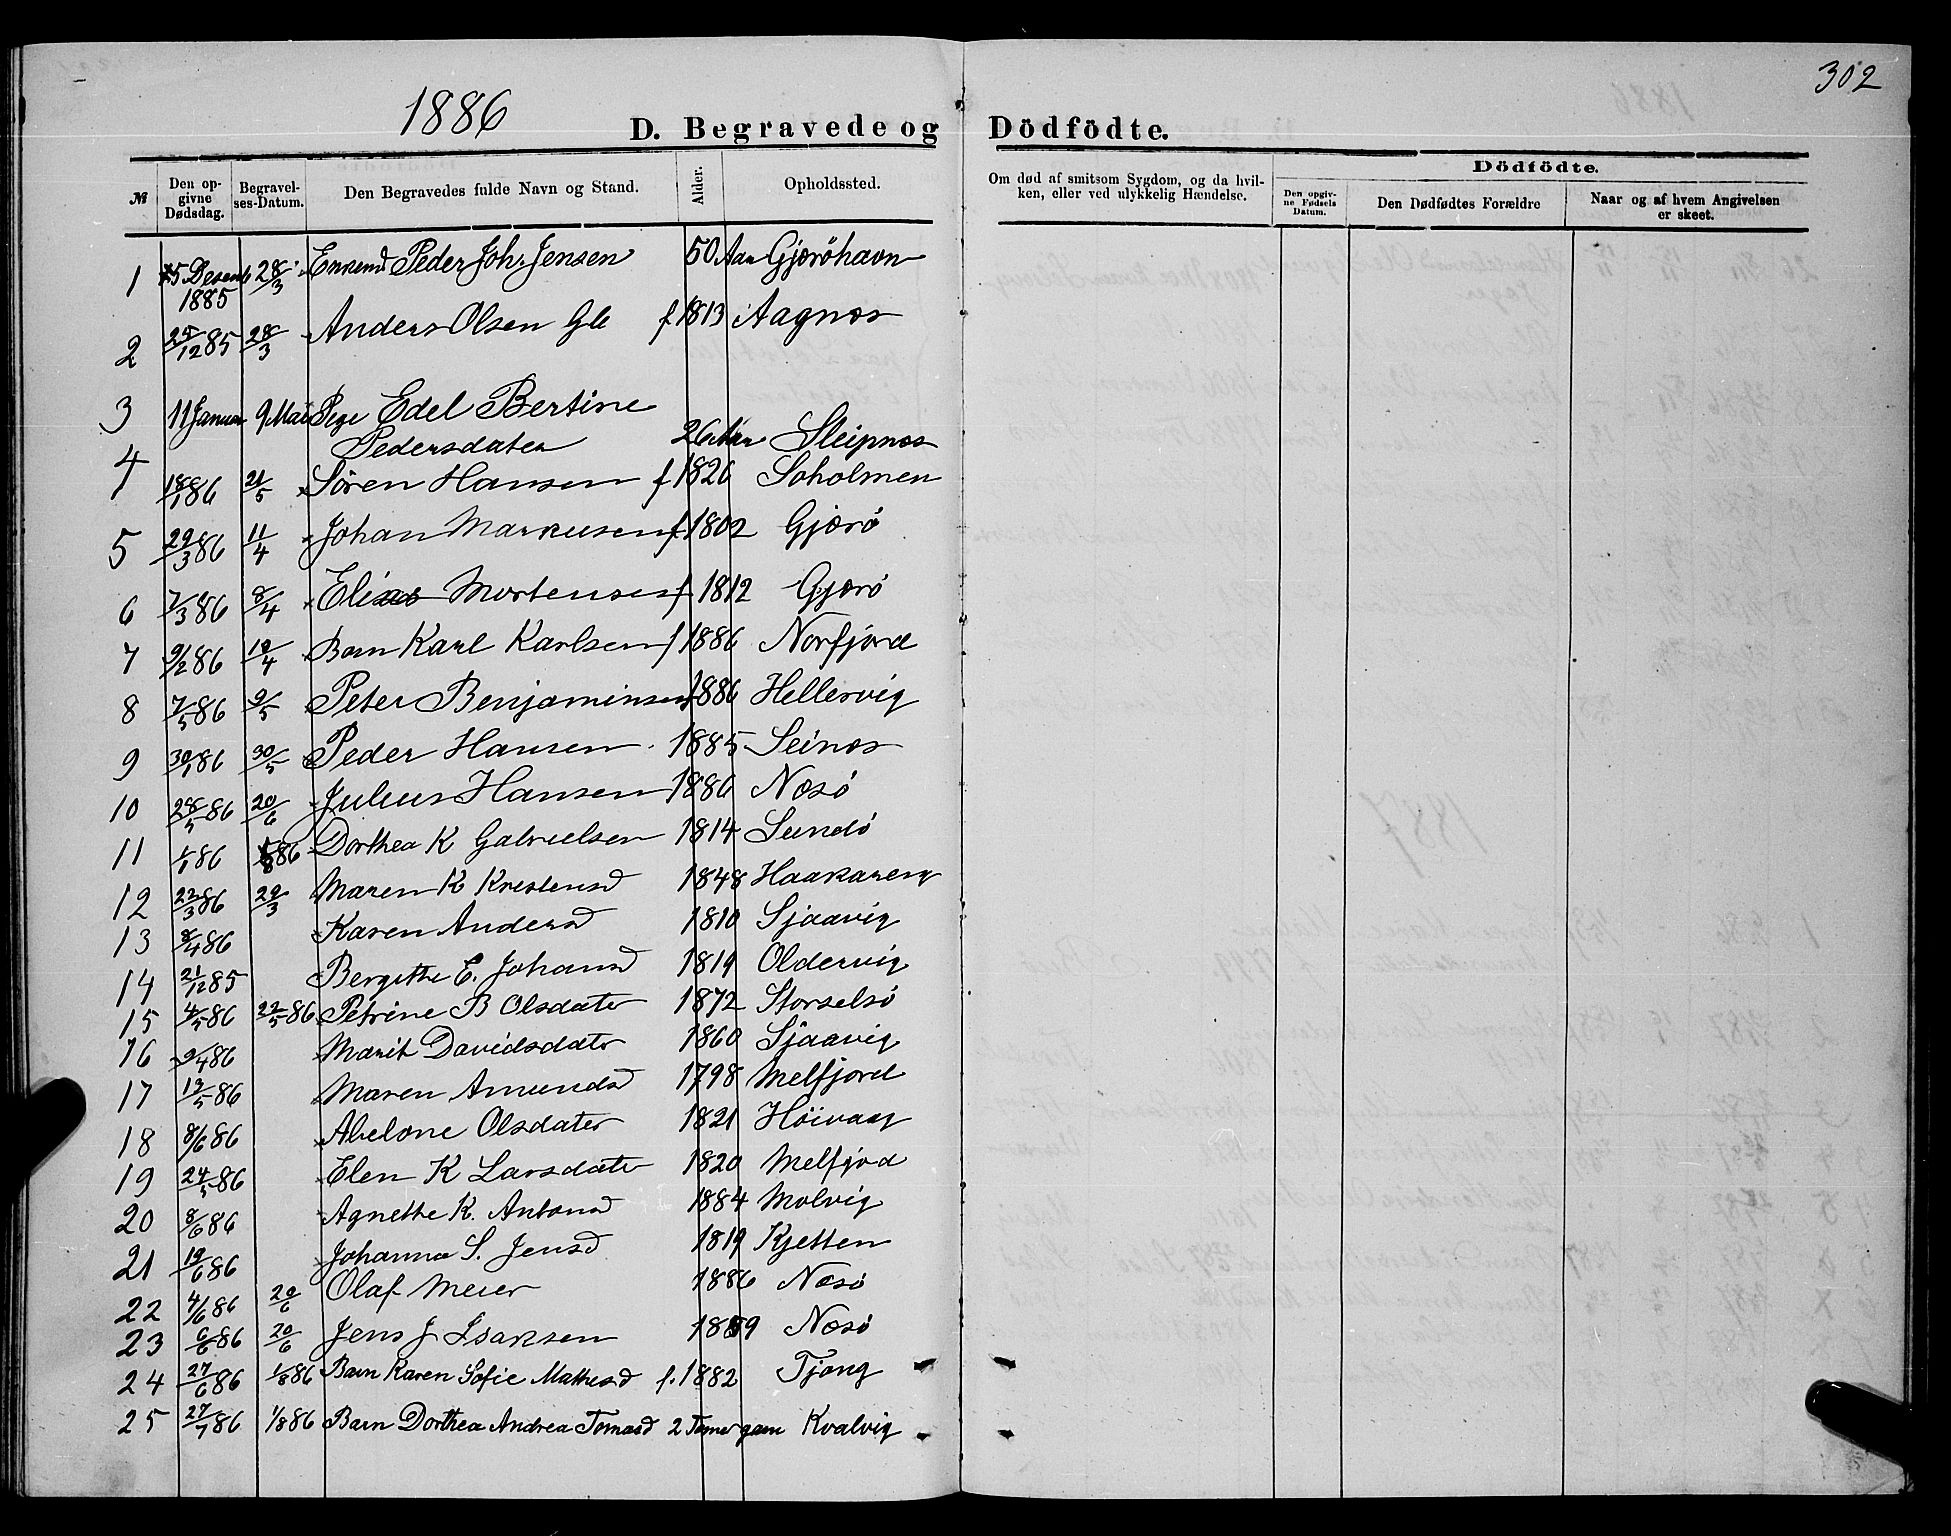 302
1886
D. Begravede og Dödfödte.
№ Den opgivne Dødsdag. Begravelses-Datum. Den Begravedes fulde Navn og Stand. Alder. Opholdssted. Om død af smitsom Sygdom, og da hvilken, eller ved ulykkelig Hændelse. Dödfödte.
Den opgivne Fødsels Datum. Den Dødfødtes Forældre Naar og af hvem Angivelsen er skeet.
1 Desemb 1885 28/3 Enkemd Peder Joh. Jensen 50 Aar Gjæröhavn
2 /12 85 28/3 Anders Olsen f 1813 Aagnæs
3 11 Januar 9 Mai Pige Edel Bertine
Pedersdater 26 Aar Sleipnæs
4 18/1 86 21/5 Sören Hansen f 1826 Soholmen
5 29/3 86 11/4 Johan Markusen f 1802 Gjærö
6 7/3 86 8/4 Mortensen f 1812 Gjærö
7 9/2 86 19/4 Barn Karl Karlsen f 1886 Norfjord
8 7/5 86 9/5 Peter Benjaminsen f 1886 Hellervig
9 30/1 86 30/5 Peder Hansen 1885 Seinæs
10 28/5 86 20/6 Julius Hansen 1886 Næsö
11 1/1 86 86 Dorthea K Gabrielsen 1814 Sundö
12 22/3 86 29/3 Maren K Kristensd 1848 Haakareng
13 8/4 86 Karen Andersd 1810 Sjaavig
14 21/12 85 Bergithe E. Johansd 1819 Oldervig
15 4/5 86 22/5 86 Petrine B Olsdater 1872 Storselsö
16 9/4 86 Marit Davidsdatr 1860 Sjaavig
17 19/5 86 Maren Amundsd 1798 Melfjord
18 8/6 86 Abelone Olsdater 1821 Höivaag
19 24/5 86 Elen K Larsdatr 1820 Melfjord
20 8/6 86 Agnethe K. Antonsd 1884 Molvig
21 19/6 86 Johanna S. Jensd 1819 Kjetten
22 4/6 86 20/6 Olaf Meier 1886 Næsö
23 6/6 86 20/6 Jens J Isaksen Næsö
24 27/6 86 1/8 86 Barn Karen Sofie Mathesd f. 1882 Tjong
25 27/7 86 1/8 86 Barn Dorthea Andrea Tomasd 2 Kvalvig